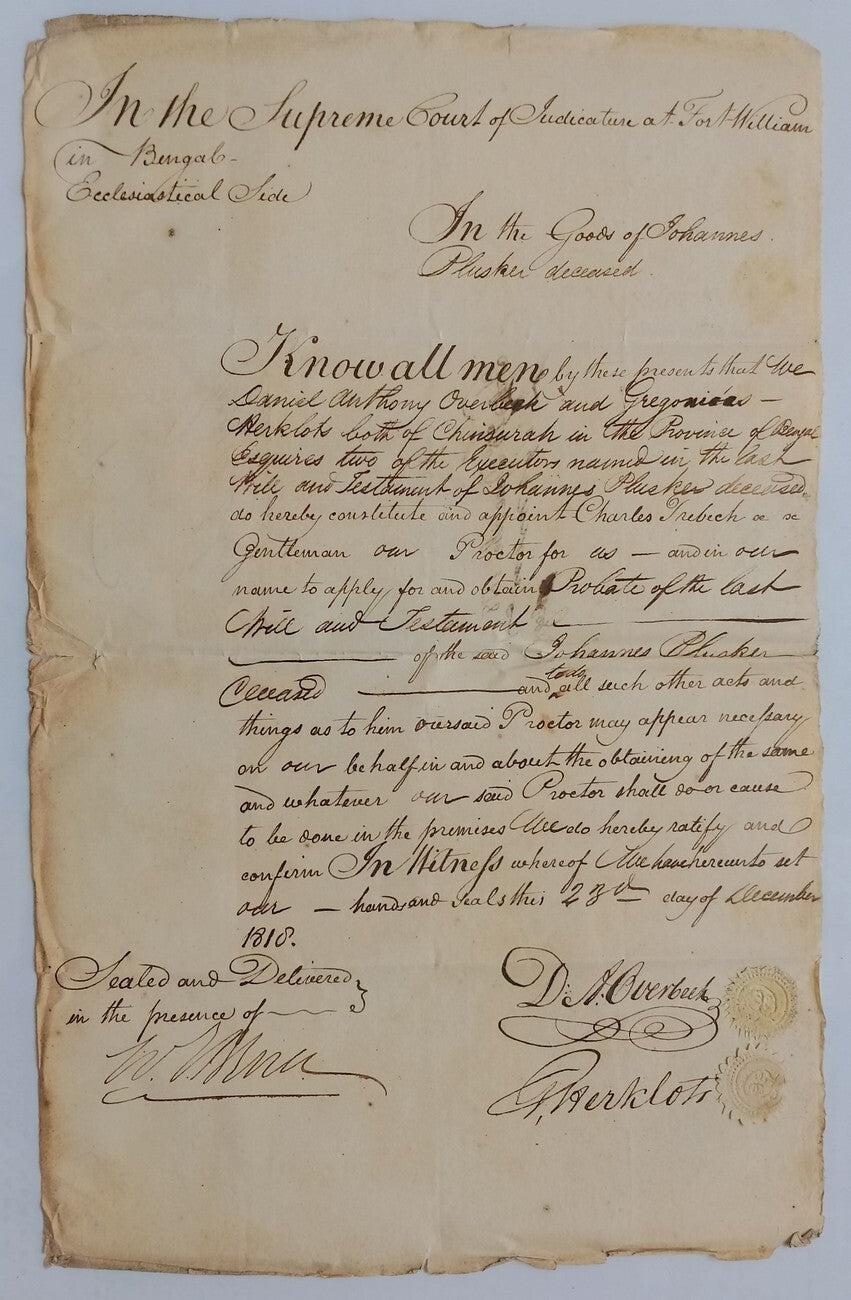 In the Supreme Court of Judicature at Fort William
in Bengal
Ecclesiastical Side
In the Goods of Johannes
Plusker deceased
Know all men by these presents that We
Daniel Anthony Overbeek and
Herklots both of Chinsurah in the Province of Bengal
Esquires two of the Executors named in the last
Will and Testament of Johannes Plusker deceased
do hereby constitute and appoint Charles Trebeck
Gentleman our Proctor for us — and in our
name to apply for and obtain Probate of the last
Will and Testament
of the said Johannes Plusker
Deceased and to do all such other acts and
things as to him our said Proctor may appear necessary
on our behalf in and about the obtaining of the same
and whatever our said Proctor shall do or cause
to be done in the premises We do hereby ratify and
confirm In Witness whereof We have hereunto set
our — hands and Seals this 23d day of December
1818.
Sealed and Delivered
in the presence of
D. A. Overbeek
G. Herklots